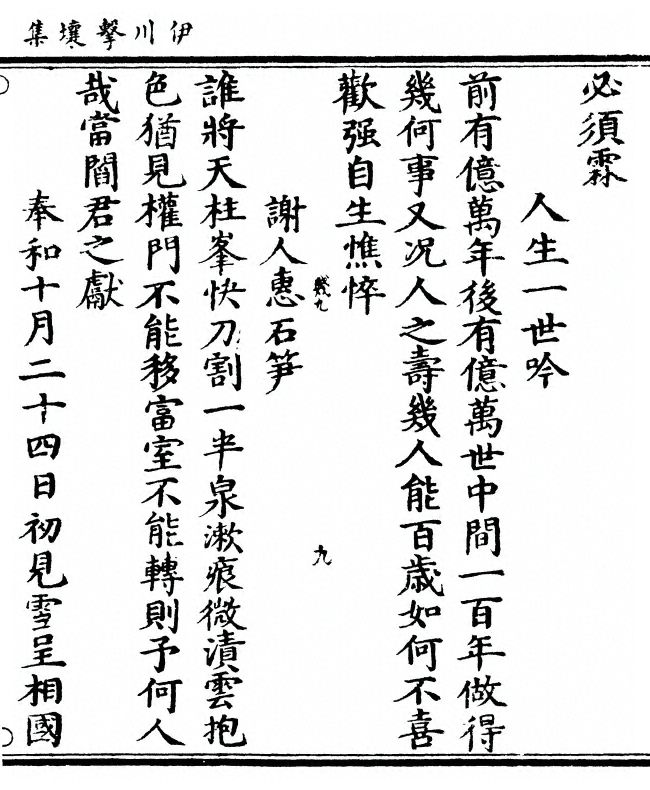 伊川擊壤集
必須霖
人生一世吟
前有億萬年後有億萬世中間一百年做得
幾何事又況人之壽幾人能百歲如何不喜
歡强自生憔悴
謝人惠石笋
誰將天柱峯快刀割一半泉漱痕微漬雲抱
色猶見權門不能移富室不能轉則予何人
哉當閣君之獻
奉和十月二十四日初見雪呈相國
幾九
九